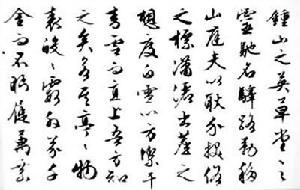 鍾山之英草堂之
靈馳煙驛路勒移
山庭夫以耿介拔俗
之標瀟灑出塵之
想度白雪以方潔干
青雲而直上吾方知
之矣若其亭亭物
表皎皎霞外芥千
金而不眄屣萬乘